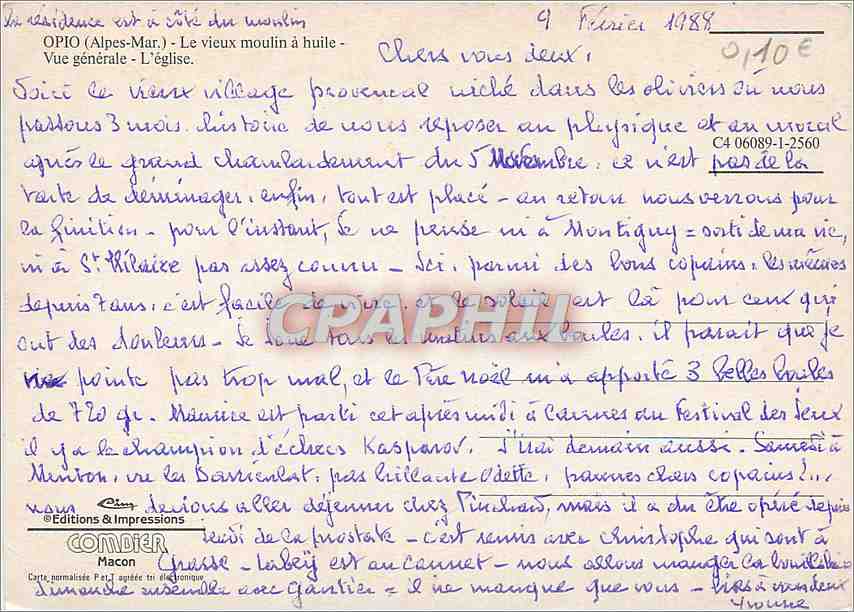 La résidence est à côté du moulin
9 Février 1988
OPIO (Alpes-Mar.) - Le vieux moulin à huile -
Vue générale - L'église.
Chers vous deux,
0,10 €
Voici le vieux village provencal niché dans les oliviers où nous
passons 3 mois. histoire de nous reposer au physique et au moral
C4 06089-1-2560
après le grand chambardement du 5 Novembre. ce n'est pas de la
tarte de déménager, enfin, tout est placé - au retour nous verrons pour
la finition - pour l'instant, Je ne pense ni à Montigny = sorti de ma vie,
ni à St Hilaire pas assez connu - Ici, parmi des bons copains, les mêmes
depuis 7 ans, c'est facile de vivre, et le soleil est là pour ceux qui
CPAPHIL
ont des douleurs - Je joue tous les matins aux boules, il parait que je
pointe pas trop mal, et le Père Noël m'a apporté 3 belles boules
de 720 gr. Maurice est parti cet après midi à Cannes au Festival des Jeux
il y a le champion d'échecs Kasparov. J'irai demain aussi. Samedi à
Menton, vu les pas brillante Odette, pauvres chers copains !...
nous devions aller déjeuner chez mais il a du être opéré depuis
©Editions & Impressions
COMBIER
Macon
Carte normalisée P et T agréée tri électronique
Jeudi de la prostate - c'est remis avec Christophe qui sont à
Grasse - est au Cannet - nous allons manger la bouillabaisse
dimanche ensemble avec Gautier = il ne manque que vous - à vous deux
Yvonne